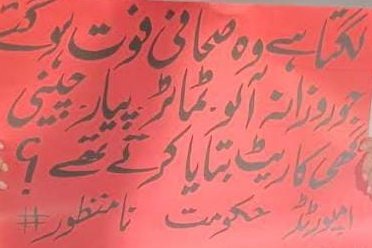 لگتا ہے وہ صحافی فوت ہو گئے
جو روزانہ آلو ٹماٹر پیاز چینی
گھی کا ریٹ بتایا کرتے تھے ؟
امپورٹڈ حکومت نامنظور #